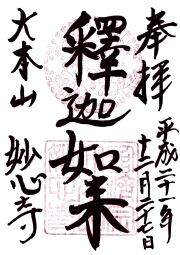 奉拝
平成二十一年
十二月二十七日
釋迦如来
大本山
妙心寺